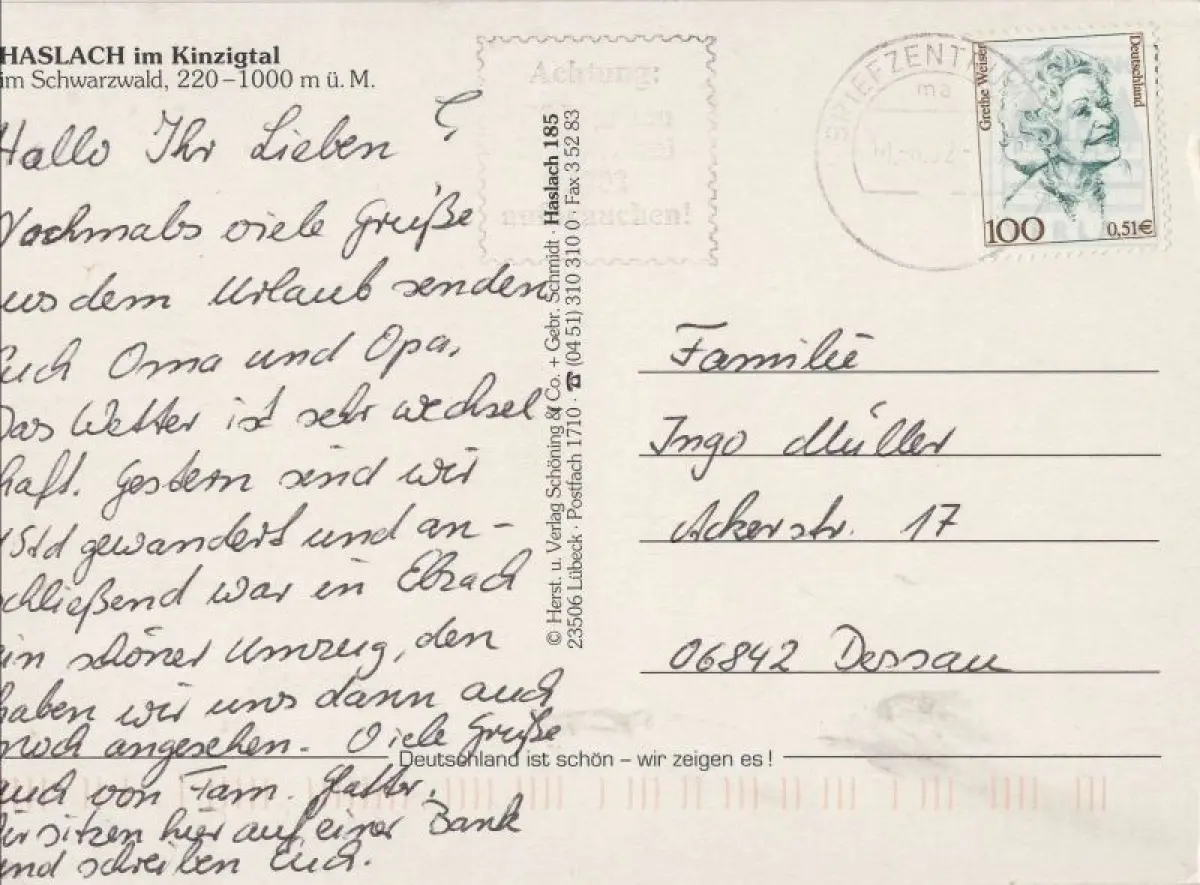 HASLACH im Kinzigtal
im Schwarzwald, 220–1000 m ü. M.
Hallo Ihr Lieben!
Nochmals viele Grüße
aus dem Urlaub senden
Euch Oma und Opa.
Das Wetter ist sehr wechsel
haft. Gestern sind wir
Std gewandert und an-
schließend war in Elzach
ein schöner Umzug, den
haben wir uns dann auch
noch angesehen. Viele Grüße
auch von Fam.
Wir sitzen hier auf einer Bank
und schreiben Euch.
© Herst. u. Verlag Schöning & Co. + Gebr. Schmidt · Haslach 185
23506 Lübeck · Postfach 1710 · ☎ (04 51) 310 310 0 · Fax 3 52 83
Achtung:
aufbrauchen!
BRIEFZENTRUM
ma
Grethe Weiser
Deutschland
100
0,51€
Familie
Ingo Müller
Ackerstr. 17
06842 Dessau
Deutschland ist schön – wir zeigen es!